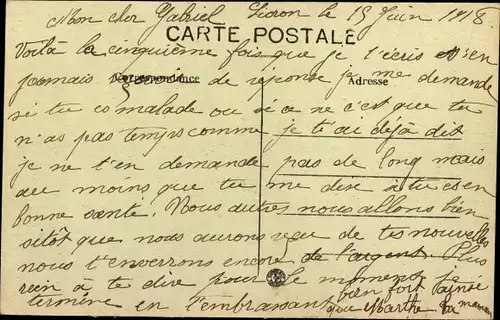 Mon cher Gabriel Lioran le 15 Juin 1918
CARTE POSTALE
Voilà la cinquième fois que je t'écris et sen
jamais de réponse je me demande
Correspondance Adresse
si tu es malade ou si ce ne c'est que tu
n'as pas temps comme je t'ai déjà dit
je ne t'en demande pas de long mais
au moins que tu me dise si tu es en
bonne santé. Nous autres nous allons bien
sitôt que nous aurons reçu de tes nouvelles
nous t'enverrons encore de l'argent. Plus
rien à te dire pour le moment
termine en t'embrassant bien fort
que Marthe ta maman